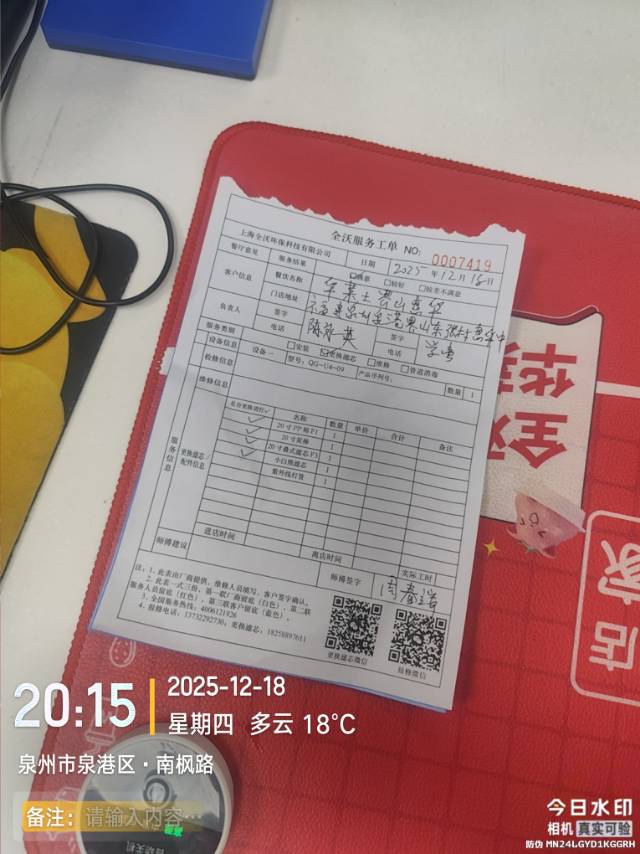 全沃服务工单
上海全沃环保科技有限公司 NO: 0007419
餐厅意见 服务结果 日期 2025年12月18日
满意 较好 较差不满意
客户信息 餐饮名称
门店地址
负责人 签字 陈 英 签字
电话 电话
服务类别 安装 更换滤芯 维修 管道消毒
设备信息 设备一 型号:QG-U4-09 产品序列号: 数量 1
检修信息
维修信息
服务信息 更换滤芯/配件信息
是否更换请打✓ 名称 数量 单价 合计 备注
✓ 20寸PP棉F1 1
✓ 20寸炭棒 1
✓ 20寸叠式滤芯F3 1
小白熊滤芯 1
紫外线灯管 1
进店时间 离店时间
师傅建议 师傅签字 实际工时
注:1、此表由厂商提供,维修人员填写,客户签字确认。
2、此表一式三份,第一联厂商留底(白色),第二联
服务人员留底(红色),第三联客户留底(蓝色)。
3、全国服务热线:4006121926
4、报修电话:13732292730;更换滤芯:18258897611
更换滤芯微信 报修微信
全沃
华莱
店家
20:15 2025-12-18
星期四 多云 18°C
泉州市泉港区·南枫路
备注: 请输入内容…
今日水印
相机 真实可验
防伪 MN24LGYD1KGGRH